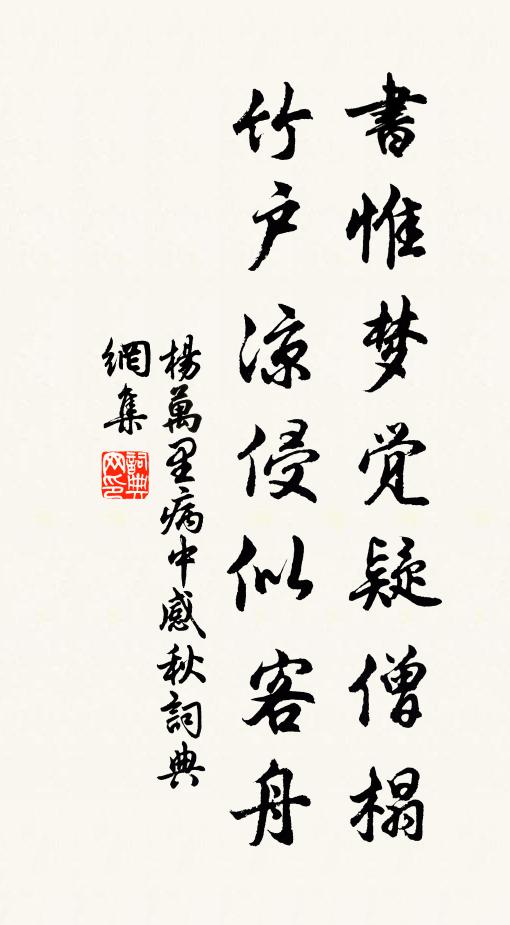 書惟梦觉疑僧榻
竹户涼侵似客舟
楊萬里病中感秋詞典
網集
詞典
网印